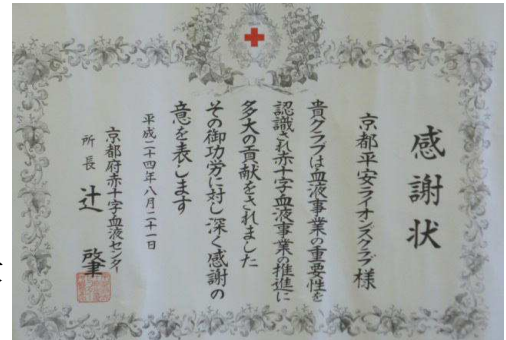 感謝状
京都平安ライオンズクラブ様
貴クラブは血液事業の重要性を
認識され赤十字血液事業の推進に
多大の貢献をされました
その御功労に対し深く感謝の
意を表します
平成二十四年八月二十一日
京都府赤十字血液センター
所長 辻 肇